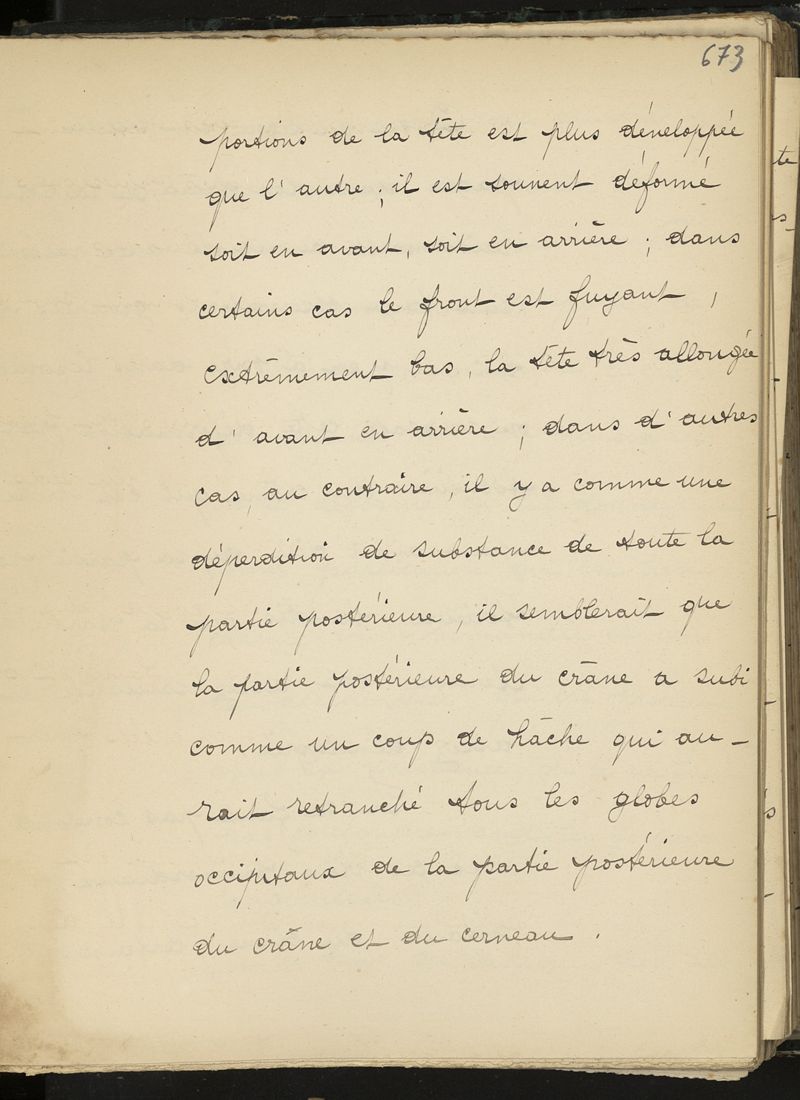 673
portions de la tête est plus développée
que l'autre ; il est souvent déformé
soit en avant, soit en arrière ; dans
certains cas le front est fuyant,
extrêmement bas, la tête très allongée
d'avant en arrière ; dans d'autres
cas, au contraire, il y a comme une
déperdition de substance de toute la
partie postérieure, il semblerait que
la partie postérieure du crâne a subi
comme un coup de hâche qui au-
rait retranché tous les globes
occipitaux de la partie postérieure
du crâne et du cerveau.
te
s-
s